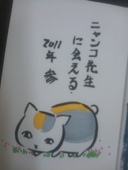 ニャンコ先生
に会える.
2011年 参